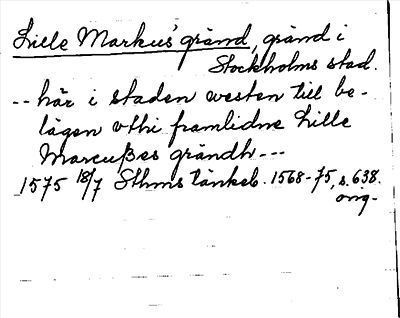 Lille Markus' gränd, gränd i
Stockholms stad.
-- här i staden westen till be-
lägen vthi framlidne Lille
Marcußes grändh ---
1575 18/7 Sthms tänkeb. 1568-75, s. 638.
orig.